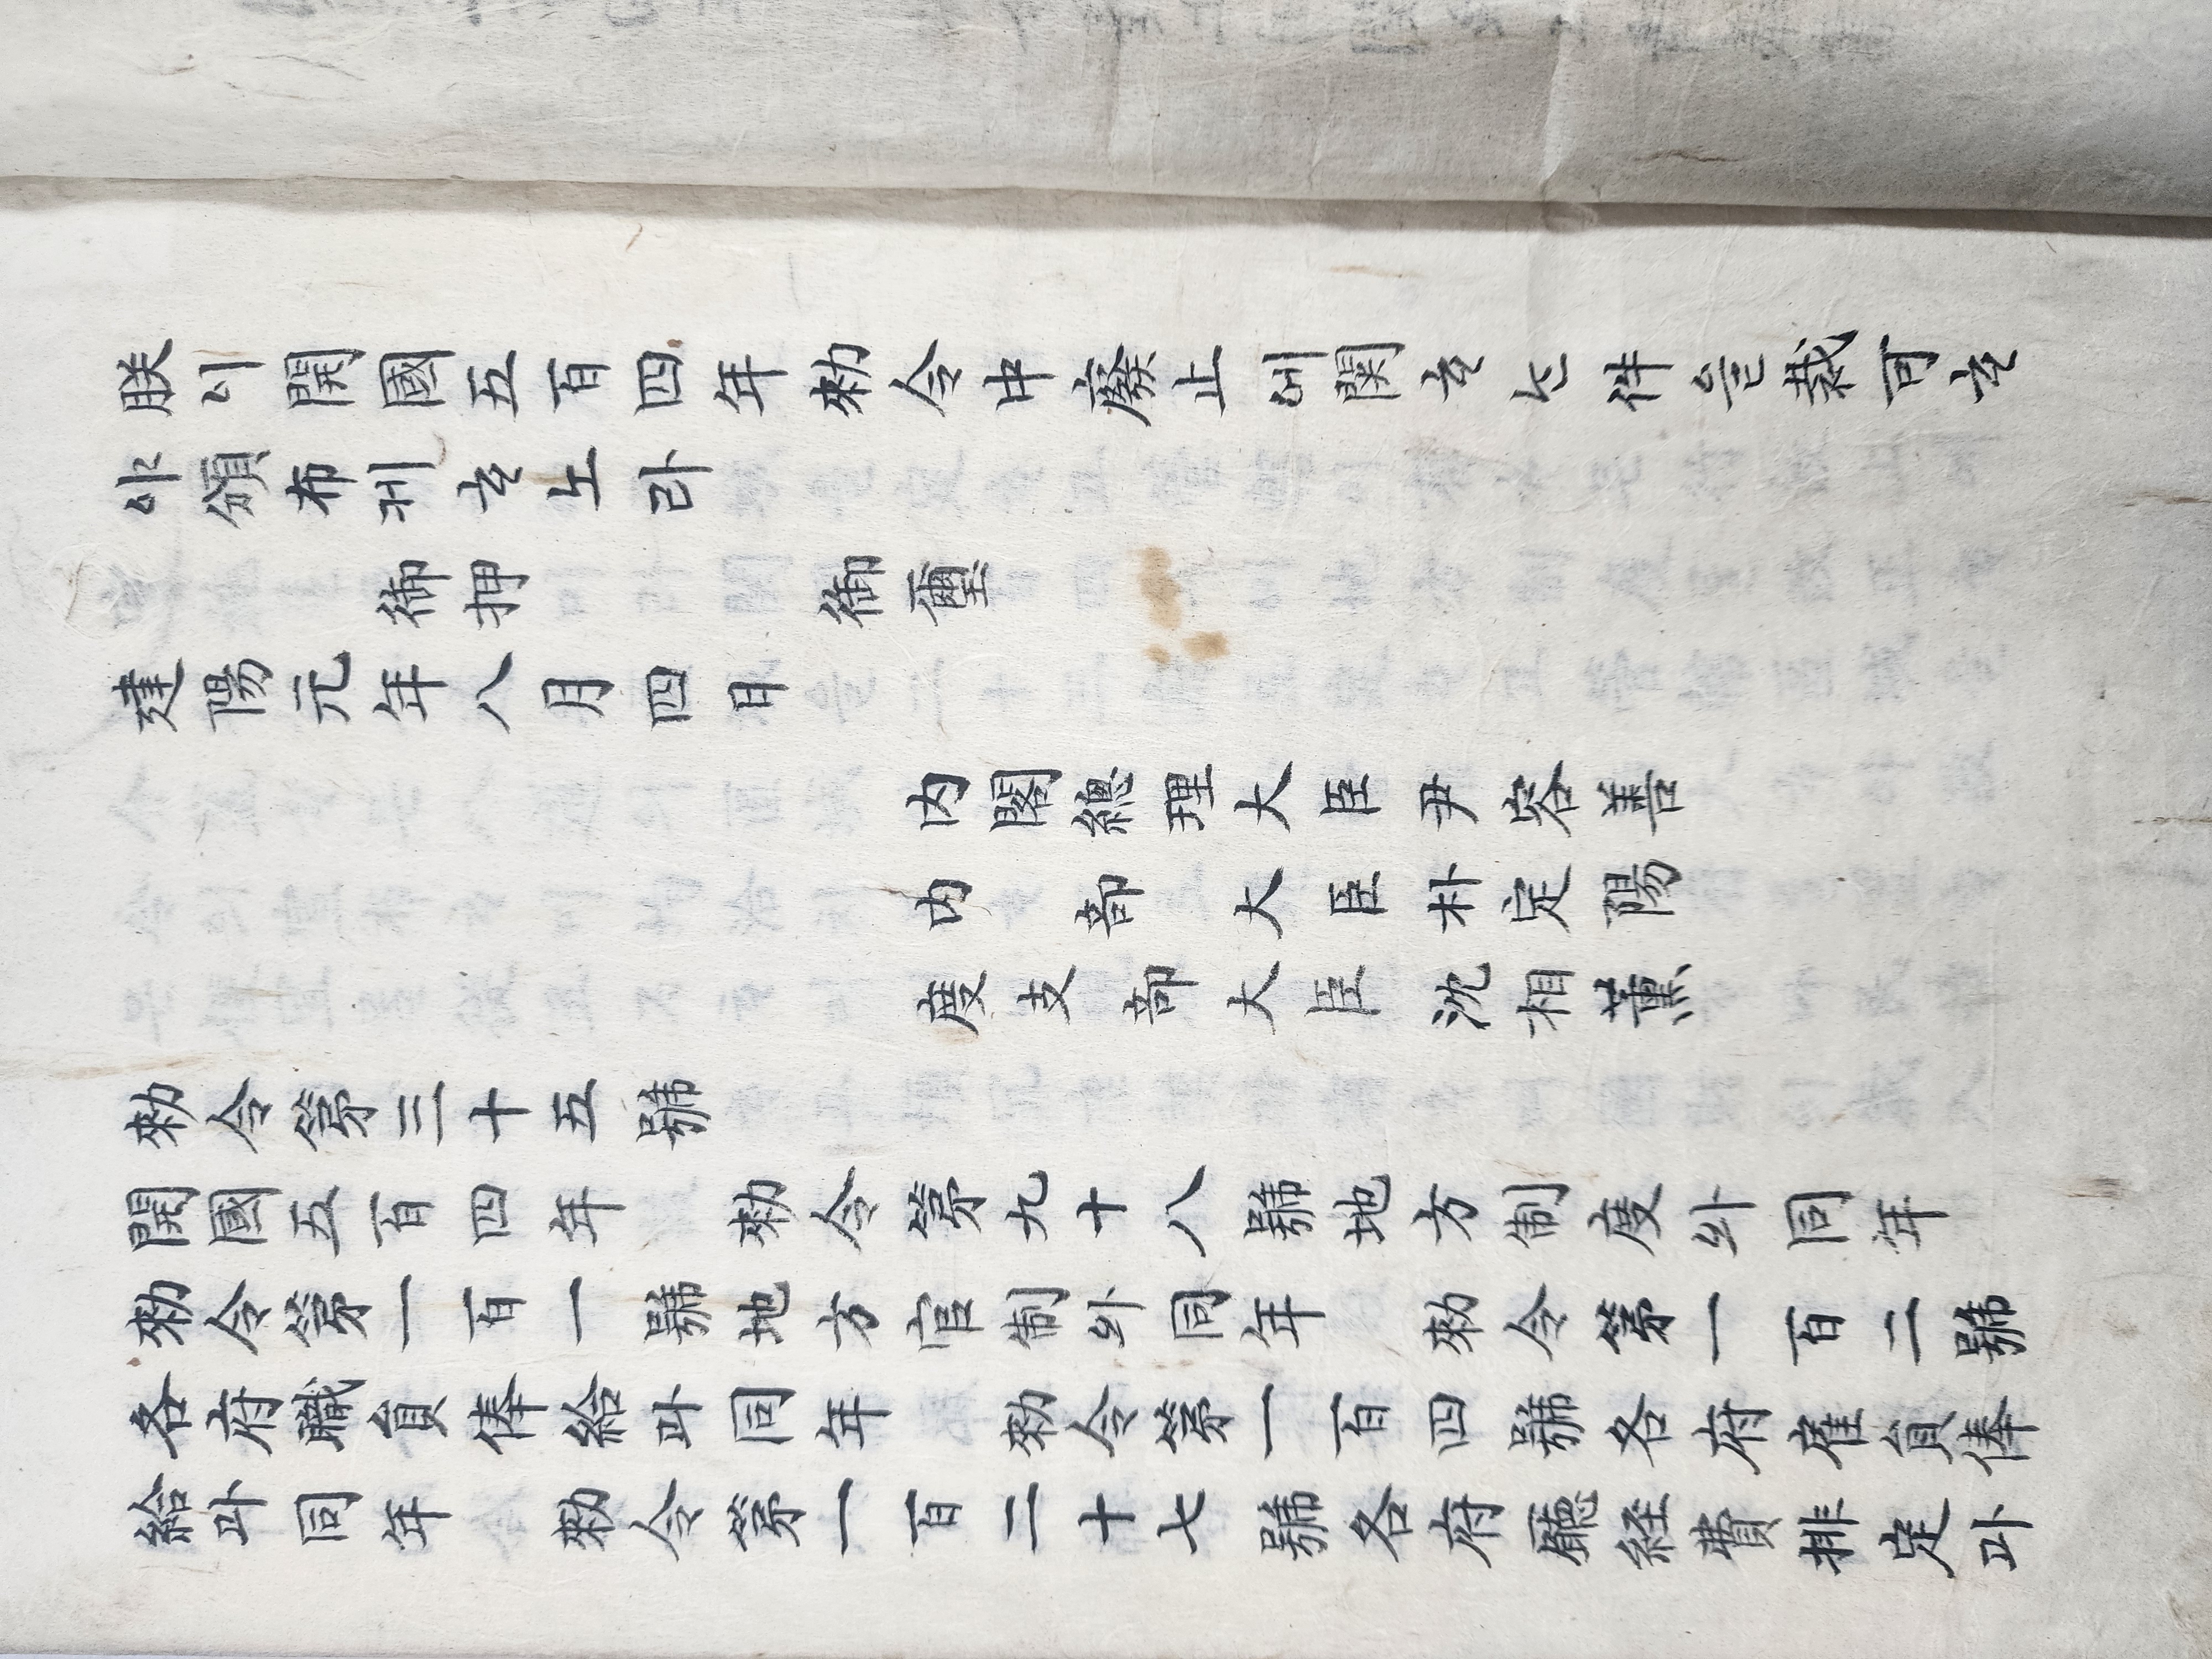 朕이開國五百四年勅令中廢止에關ᄒᆞᄂᆞᆫ件을裁可ᄒᆞ
야頒布케ᄒᆞ노라
御押 御璽
建陽元年八月四日
内閣總理大臣尹容善
内部大臣朴定陽
度支部大臣沈相薰
勅令第三十五號
開國五百四年 勅令第九十八號地方制度와同年
勅令第一百一號地方官制와同年 勅令第一百二號
各府職員俸給과同年 勅令第一百四號各府雇員俸
給과同年 勅令第一百二十七號各府廳経費排定과